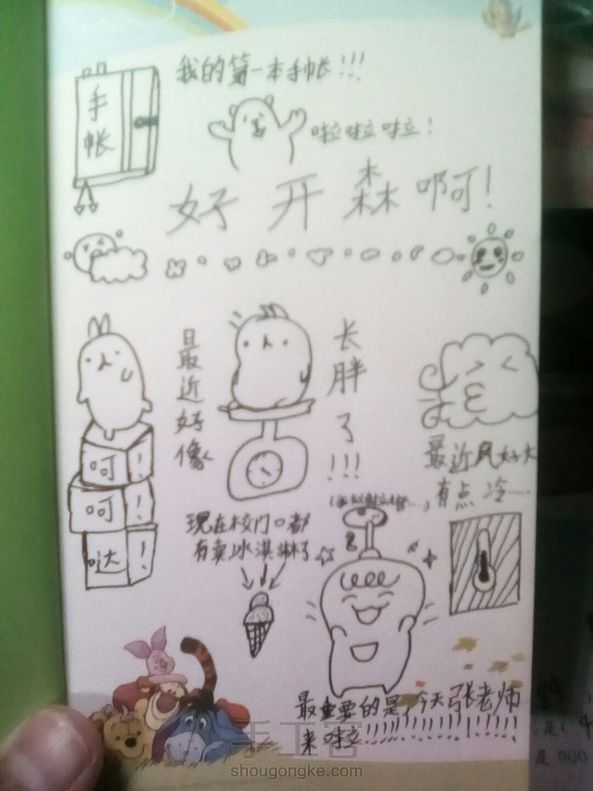 我的第一本手帐!!!
手帐
啦啦啦啦!
好开森啊!
最近好像
长胖了!!!
呵!
呵!
哒!
最近风好大
有点冷…
现在校门口都
有卖冰淇淋了
最重要的是,今天张老师
来啦!!!!!!!!!!!!!!!
手工客
shougongke.com
是
是 500